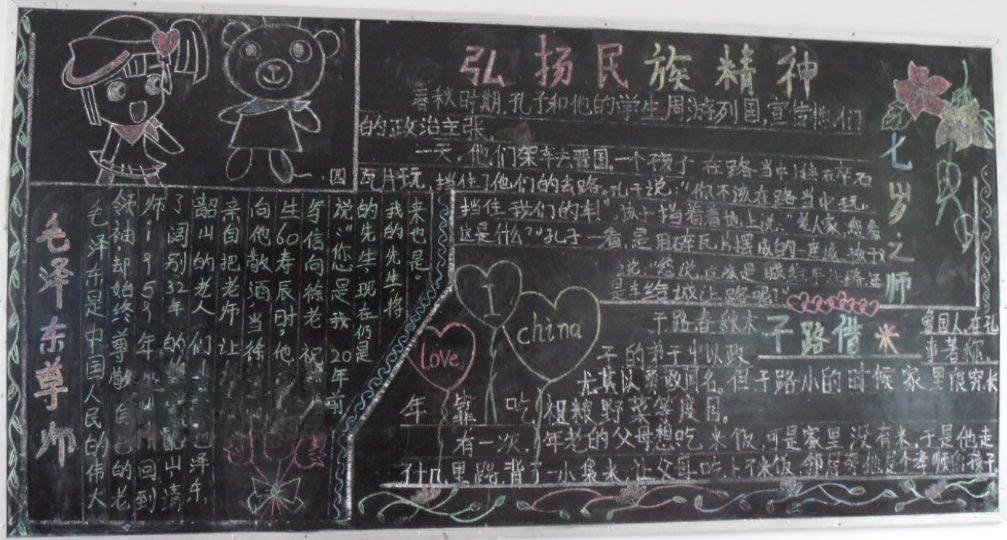 弘扬民族精神
春秋时期,孔子和他的学生周游列国,宣传他们
的政治主张。
一天,他们驾车去晋国。一个孩子在路当中
瓦片玩,挡住了他们的去路。孔子说:"你不该在路当中玩,
挡住我们的车!"孩子指着地上说:"老人家,您看
这是什么?"孔子一看,是用碎瓦片摆成的一座城。孩子又
说:"您说,应该是城给车让路还
是车给城让路呢?"
七岁之师
子路借米
子路春秋末
子的弟子中以政
但子路小的时候家里很穷,长
年靠吃粗粮野菜等度日。
有一次,年老的父母想吃米饭,可是家里没有米,于是他走
了十几里路背了一小袋米,让父母吃上了米饭,
I
Love
china
毛泽东尊师
毛泽东是中国人民的伟大
领袖却始终尊敬自己的老
师1959年
回到
了阔别32年的
韶山的老人们
亲自把老师让
向他敬酒当徐
生60寿辰时,他
写信向徐老祝
说:"您是我20年前
的先生,现在仍是
我的先生,将
来也是。